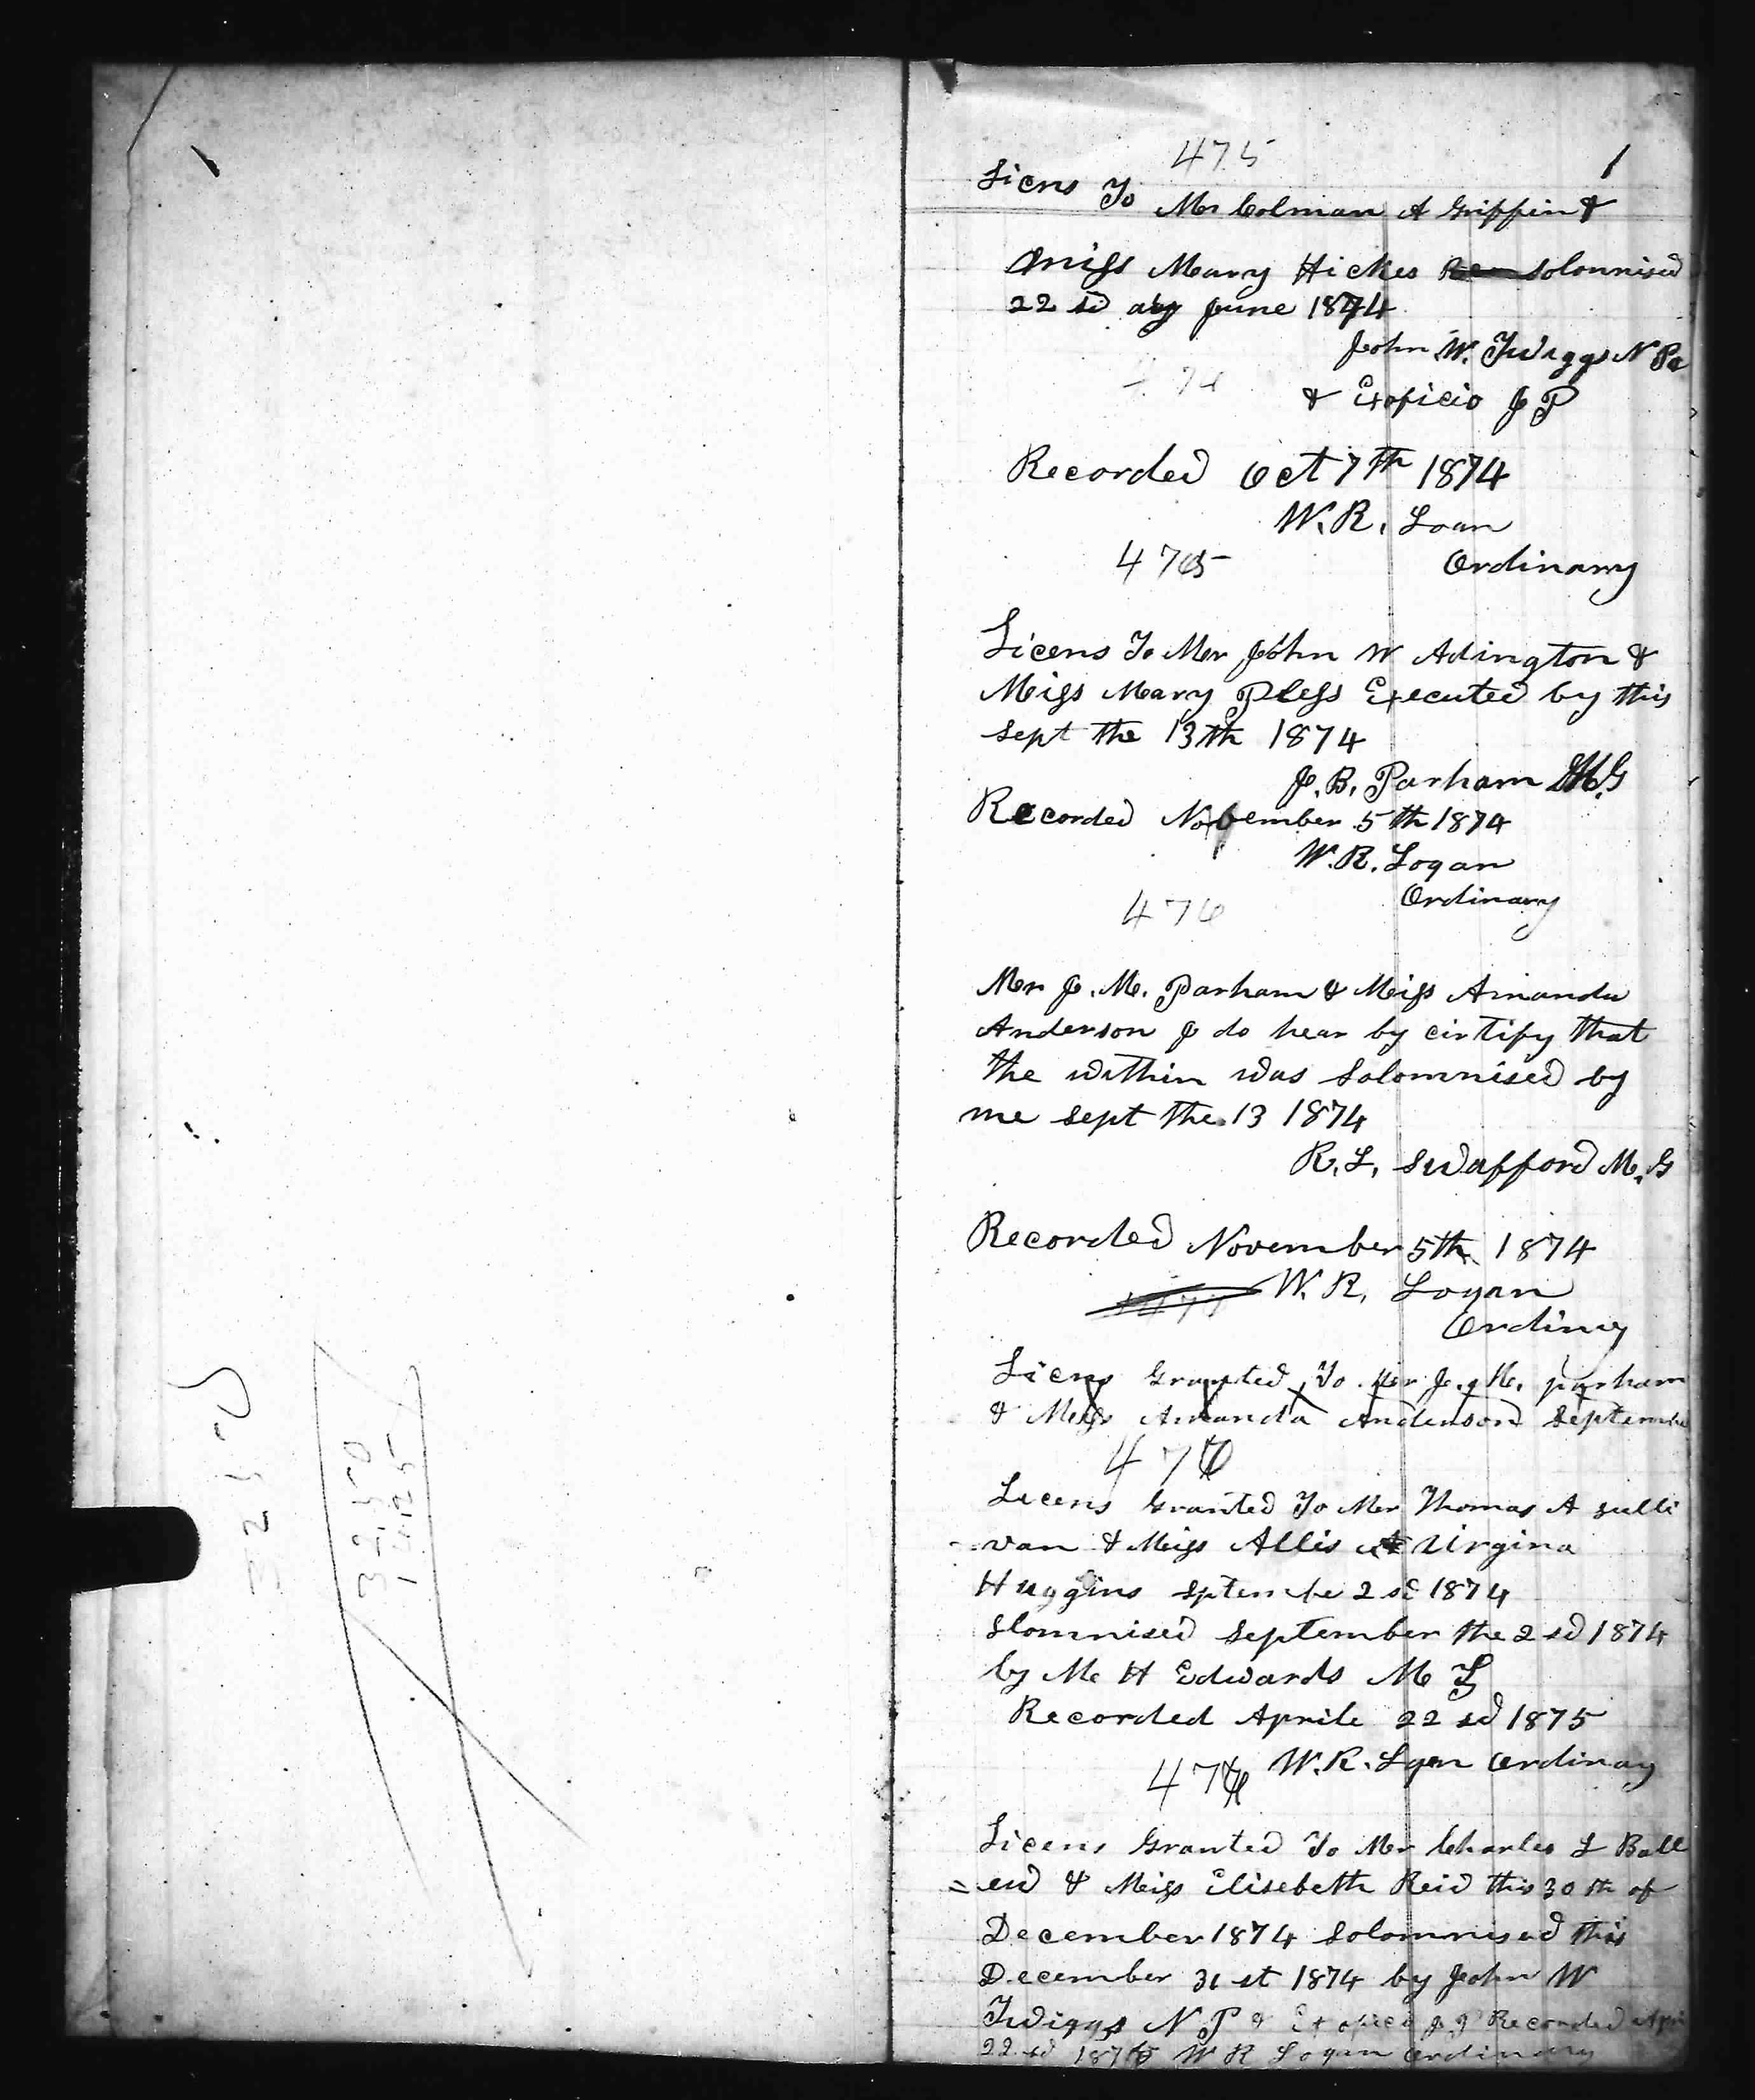 475
1
Licns To Mr Colman A Griffin &
Miss Mary Hickes solomnised
22 sd day June 1874
John W. Twiggs N Pe
& Exoficio J P
Recorded Oct 7th 1874
W. R. Loan
Ordinarry
475
Licens To Mr John W Adington &
Miss Mary Pless Executed by this
sept the 13th 1874
J. B. Parham M.G
Recorded November 5th 1874
W. R. Logan
Ordinary
476
Mr J. M. Parham & Miss Amanda
Anderson J do hear by cirtify that
the within was Solomnised by
me sept the 13 1874
R. L. Swafford M. G
Recorded November 5th 1874
W. R. Logan
Ordiny
Licns Granted To Mr J. M. parham
& Miss Amanda Anderson Septembe
476
Licens Granted To Mr Thomas A sulli
van & Miss Allis Virgina
Huggins Sptembe 2 sd 1874
Slomnised September the 2 sd 1874
by M H Edwards M G
Recorded Aprile 22 sd 1875
W. R. Lgan Ordinay
476
Licens Granted To Mr Charles L Ball
= ew & Miss Elisebeth Reid this 30 th of
December 1874 Solomnised this
December 31 st 1874 by John W
Twiggs N P & Ex oficio J P Recorded Apri
22 sd 1875 W R Logan Ordinary
3250
3250
1625